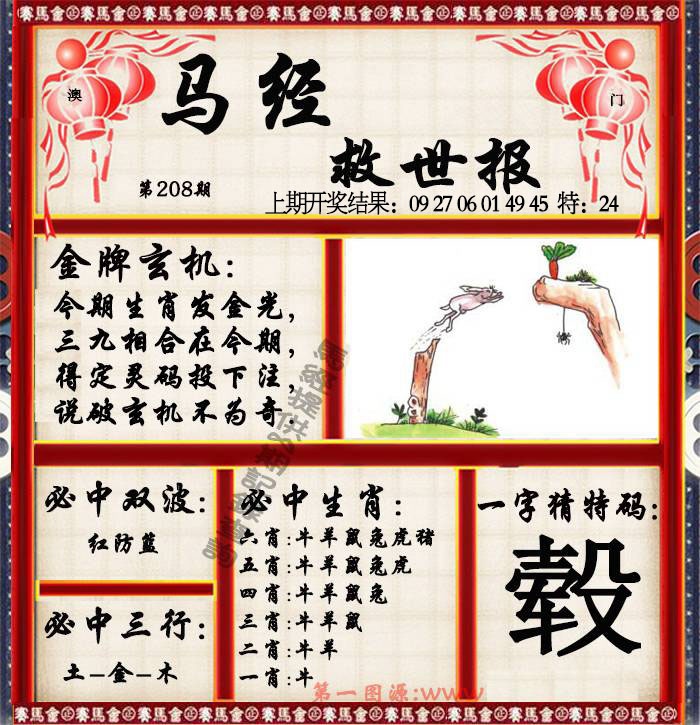 賽馬會正賽馬會正賽馬會正賽馬會正賽馬會正賽馬會正賽馬會
澳
门
马经
救世报
第208期
上期开奖结果：09 27 06 01 49 45 特：24
金牌玄机：
今期生肖发金光，
三九相合在今期，
得定灵码投下注，
说破玄机不为奇.
必中双波：
红防蓝
必中三行：
土-金-木
必中生肖：
六肖：牛羊鼠兔虎猪
五肖：牛羊鼠兔虎
四肖：牛羊鼠兔
三肖：牛羊鼠
二肖：牛羊
一肖：牛
一字猜特码：
毂
第一图源：www